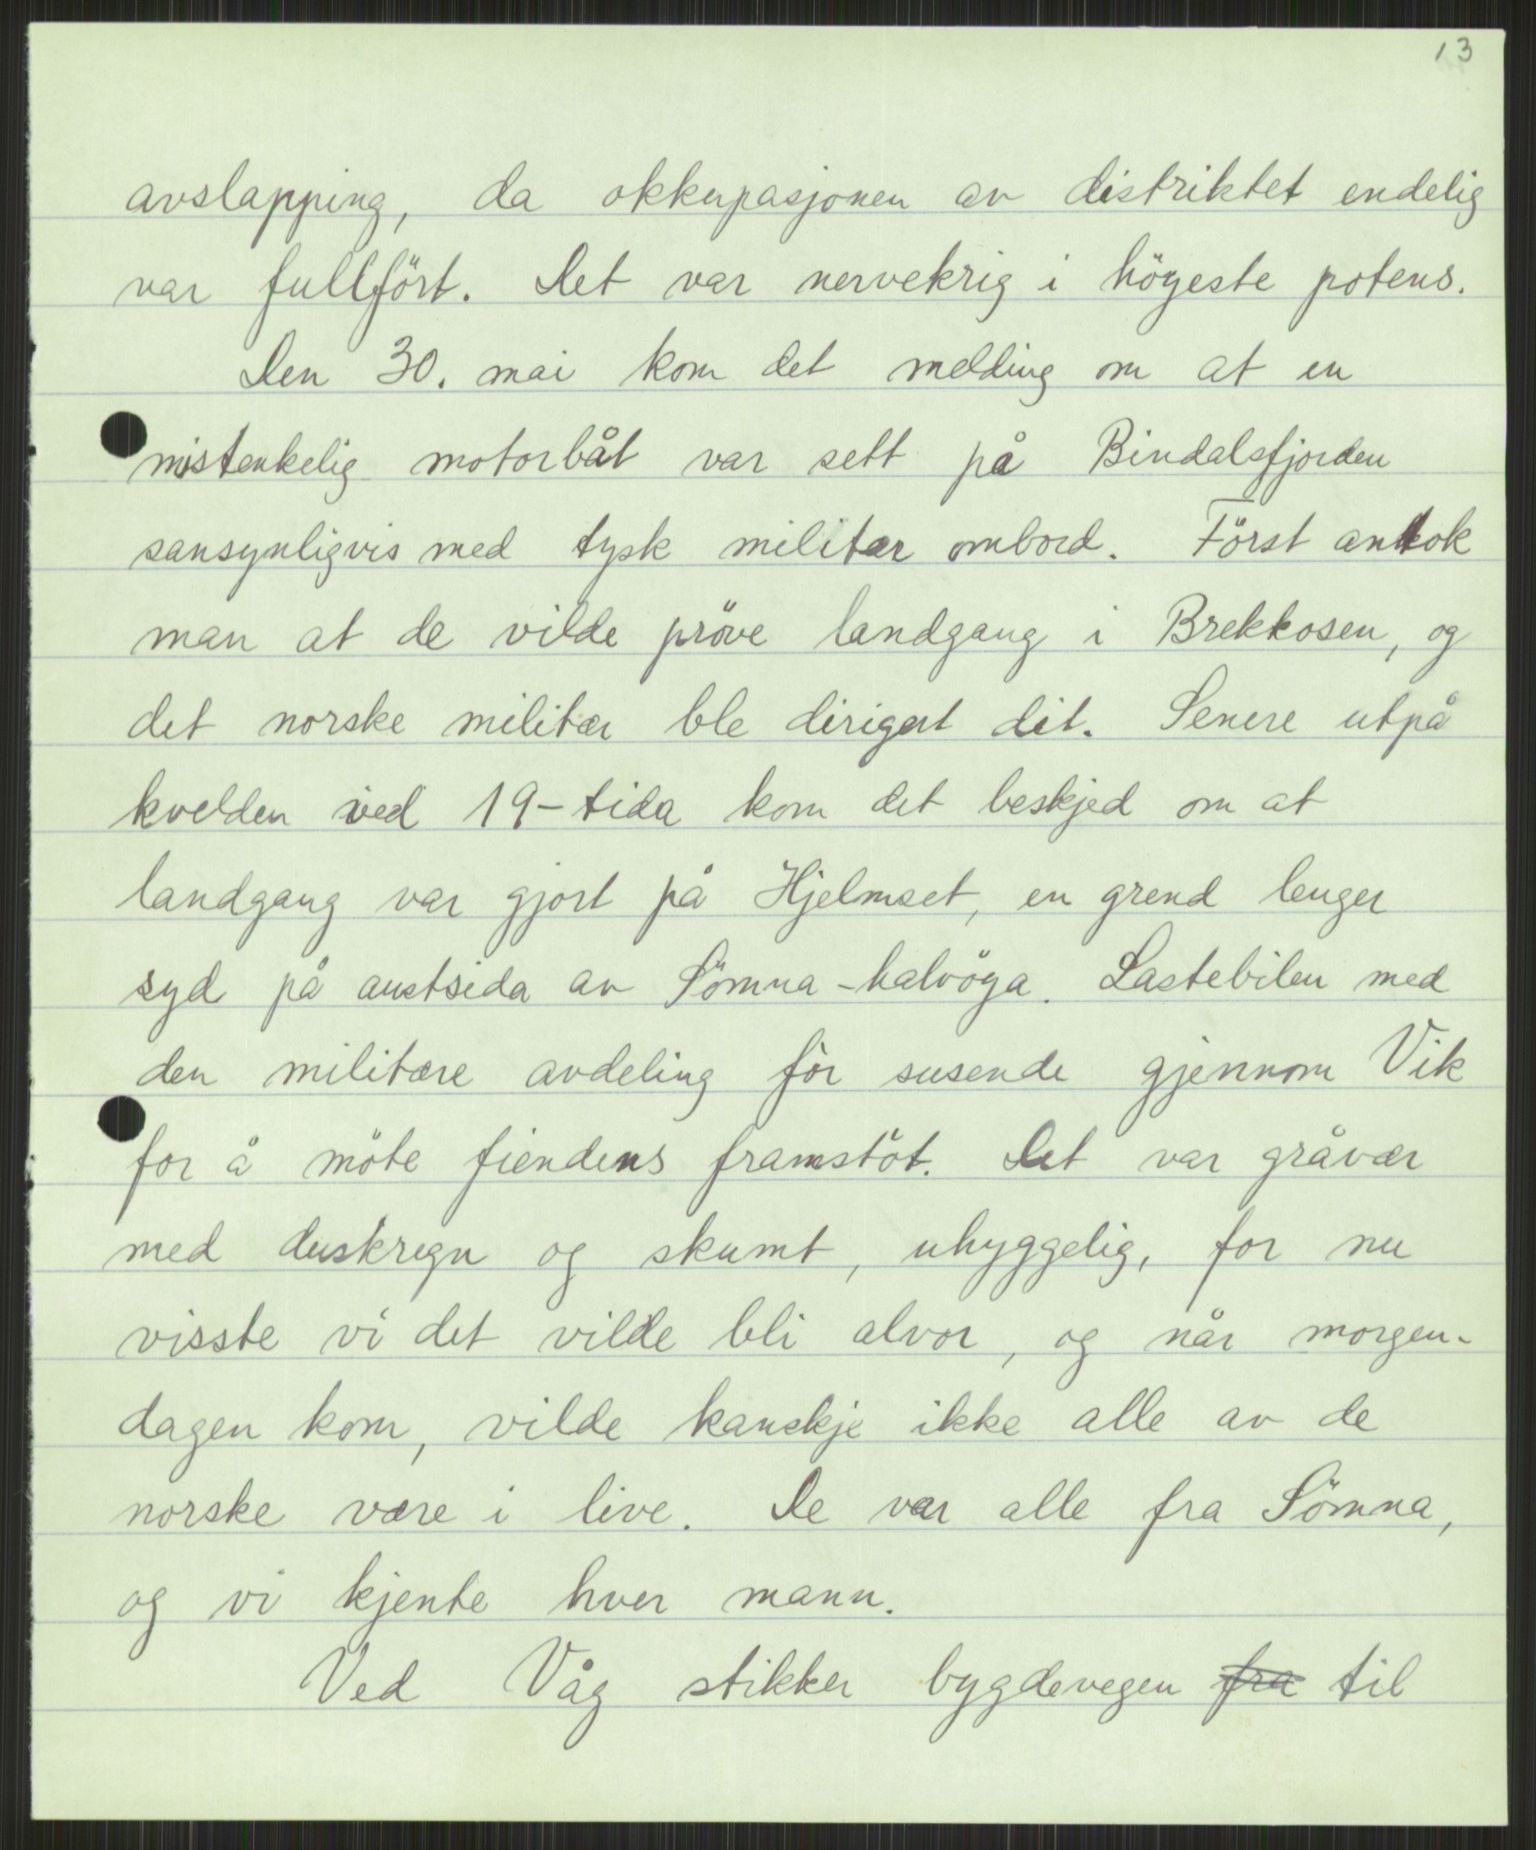 13
avslapping, da okkupasjonen av distriktet endelig
var fullfört. Det var nervekrig i högeste potens.
Den 30. mai kom det melding om at en
mistenkelig motorbåt var sett på Bindalsfjorden
sansynligvis med tysk militær ombord. Först antok
man at de vilde pröve landgang i Brekkosen, og
det norske militær ble dirigert dit. Senere utpå
kvelden ved 19-tida kom det beskjed om at
landgang var gjort på Hjelmset, en grend lenger
syd på austsida av Sömna-halvöga. Lastebilen med
den militære avdeling fór susende gjennom Vik
for å möte fiendens framstöt. Det var gråvær
med duskregn og skumt, uhyggelig, for nu
visste vi det vilde bli alvor, og når morgen-
dagen kom, vilde kanskje ikke alle av de
norske være i live. De var alle fra Sömna,
og vi kjente hver mann.
Ved Våg stikker bygdevegen fra til